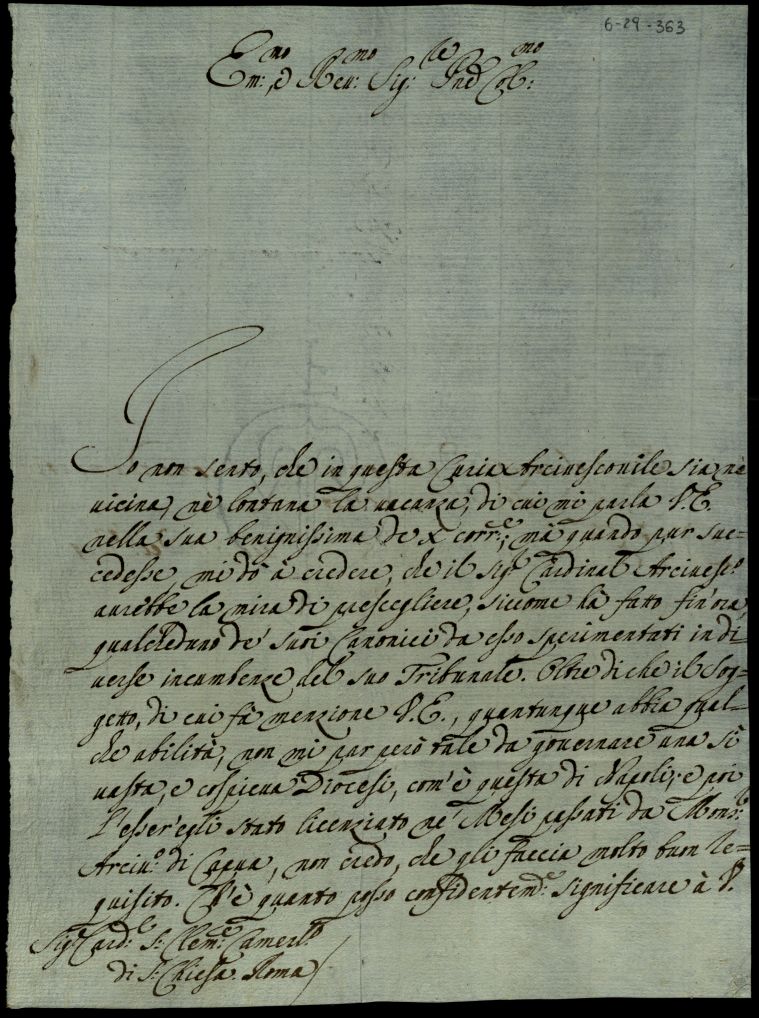 6-29-363
Em:mo, e Reu:mo Sig:le Pnē Col:mo
Io non sento, che in questa Curia Arciuescouile sia, nè
uicina, nè lontana la uacanza, di cui mi parla V.E.
nella sua benignissima de X corr:e; mà quando pur suc=
cedesse, mi dò à credere, che il Sig:r Cardinal Arciuesc:o
aurebbe la mira di prescegliere, siccome hà fatto fin'ora,
qualcheduno de' suoi Canonici da esso sperimentati in di
uerse incumbenze del suo Tribunale. Oltre di che il Sog=
getto, di cui fà menzione V.E., quantunque abbia qual=
che abilità, non mi par però tale da gouernare una sì
uasta, e cospicua Diocesi, com'è questa di Napoli; e poi
l'esser'egli stato licenziato ne' Mesi passati da Mons:r
Arciu:o di Capua, non credo, che gli faccia molto buon re=
quisito. Ch'è quanto posso confidentem:e significare à V.
Sig:r Card:le S: Clem:e Camerl:o
di S: Chiesa. Roma